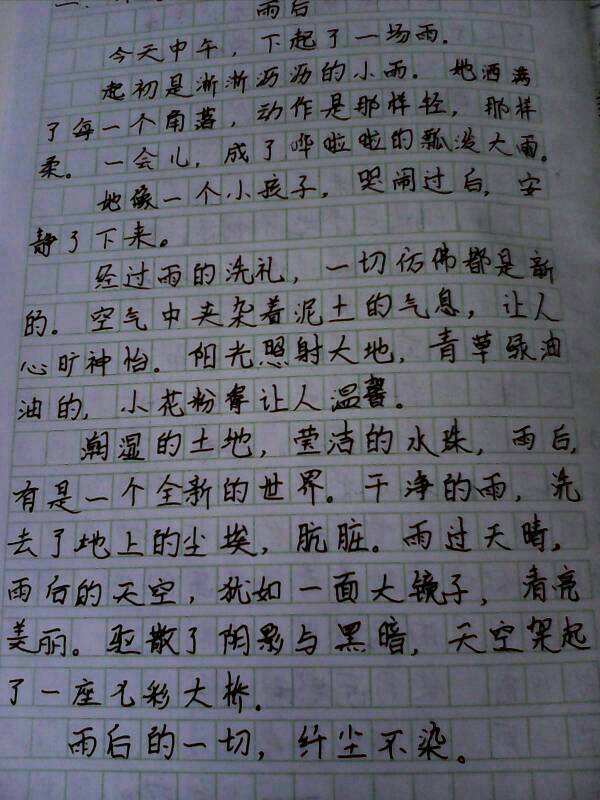 雨后
今天中午，下起了一场雨。
起初是淅淅沥沥的小雨。她洒满
了每一个角落，动作是那样轻，那样
柔。一会儿，成了哗啦啦的瓢泼大雨。
她像一个小孩子，哭闹过后，安
静了下来。
经过雨的洗礼，一切仿佛都是新
的。空气中夹杂着泥土的气息，让人
心旷神怡。阳光照射大地，青草绿油
油的，小花粉让人温馨。
潮湿的土地，莹洁的水珠，雨后，
有是一个全新的世界。干净的雨，洗
去了地上的尘埃，肮脏。雨过天晴，
雨后的天空，犹如一面大镜子，看亮
美丽。驱散了阴影与黑暗，天空架起
了一座七彩大桥。
雨后的一切，纤尘不染。